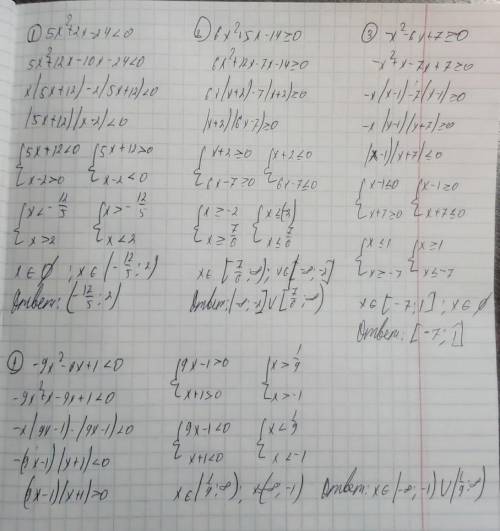 ① 5x²+2x-24<0
5x²+12x-10x-24<0
x(5x+12)-2(5x+12)<0
(5x+12)(x-2)<0
{5x+12<0 {5x+12>0
{x-2>0 {x-2<0
{x<-12/5 {x>-12/5
{x>2 {x<2
x∈∅ ; x∈(-12/5; 2)
Ответ: (-12/5; 2)
② 6x²+5x-14≥0
6x²+12x-7x-14≥0
6x(x+2)-7(x+2)≥0
(x+2)(6x-7)≥0
{x+2≥0 {x+2≤0
{6x-7≥0 {6x-7≤0
{x≥-2 {x≤(-2)
{x≥7/6 {x≤7/6
x∈[7/6;∞); x∈(-∞;-2]
Ответ: (-∞;-2]∪[7/6;∞)
③ -x²-6x+7≥0
-x²+x-7x+7≥0
-x(x-1)-7(x-1)≥0
-x(x-1)(x+7)≥0
(x-1)(x+7)≤0
{x-1≤0 {x-1≥0
{x+7≥0 {x+7≤0
{x≤1 {x≥1
{x≥-7 {x≤-7
x∈[-7;1]; x∈∅
Ответ: [-7;1]
-9x²-8x+1<0
-9x²+x-9x+1<0
-x(9x-1)-(9x-1)<0
-(9x-1)(x+1)<0
(9x-1)(x+1)>0
{9x-1>0 {x>1/9
{x+1>0 {x>-1
{9x-1<0 {x<1/9
{x+1<0 {x<-1
x∈(1/9;∞); x(-∞;-1)
Ответ: x∈(-∞;-1)∪(1/9;∞)